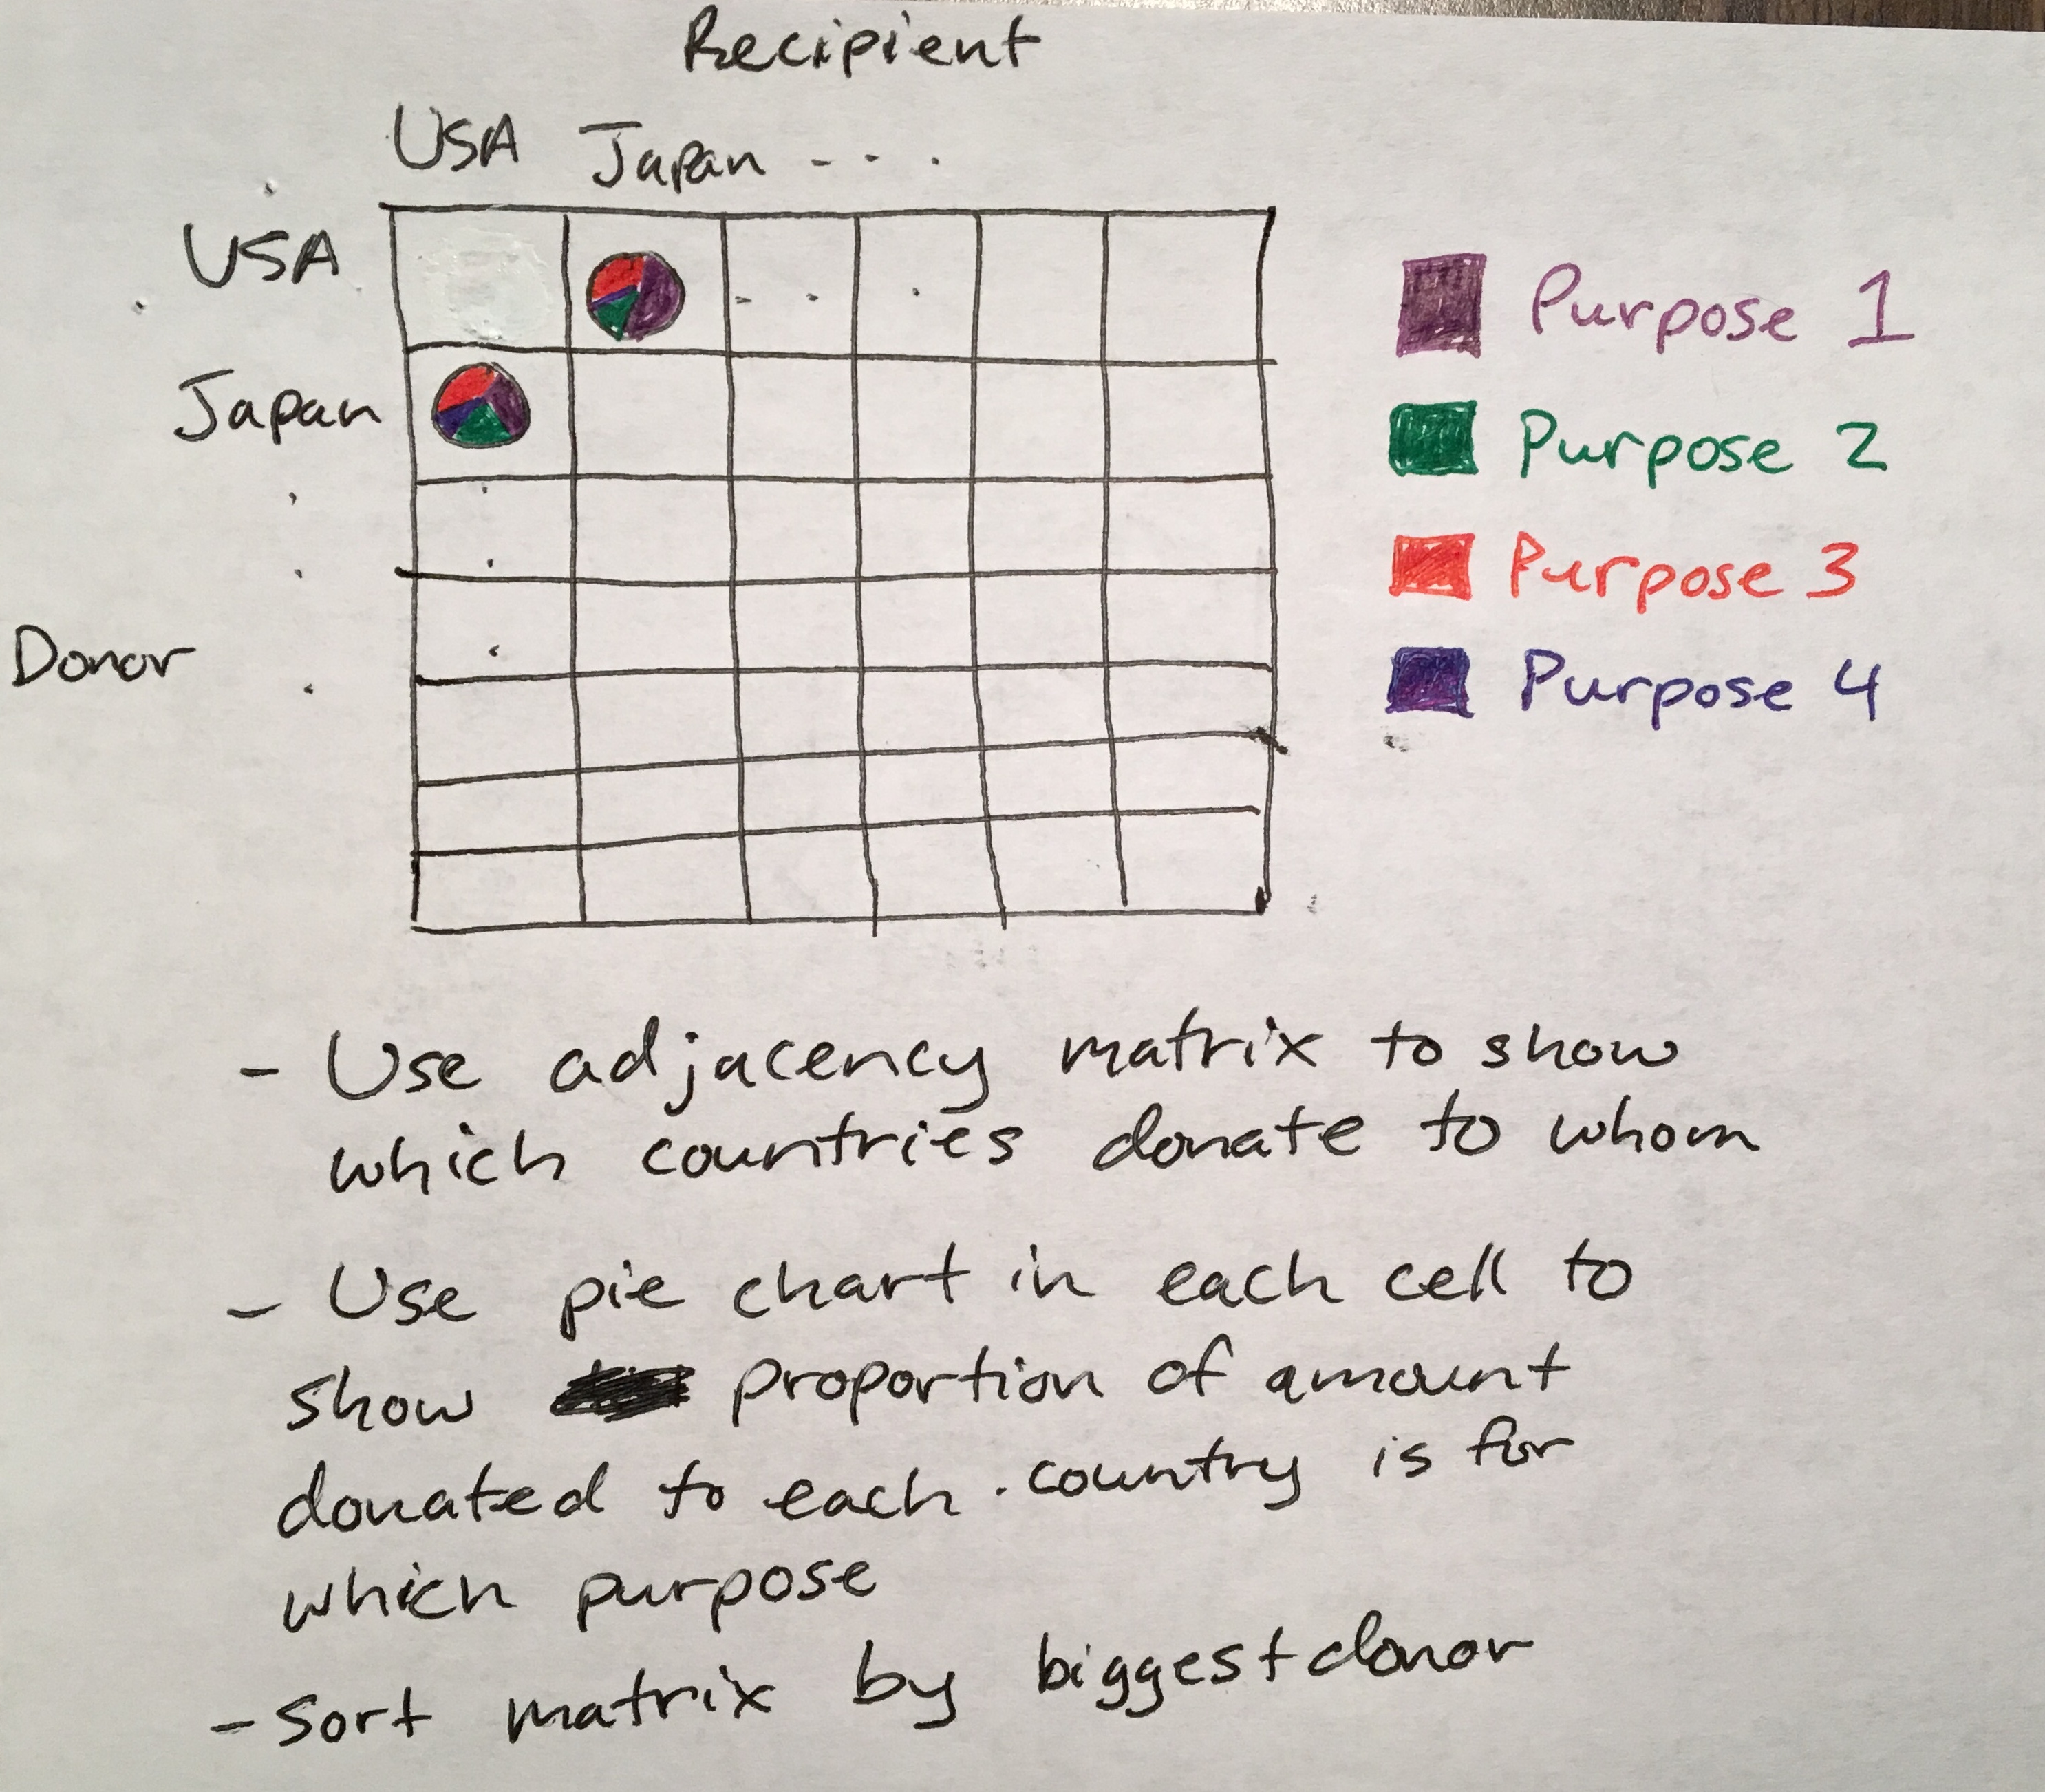 Recipient
USA Japan - - .
USA
Japan
Donor
Purpose 1
Purpose 2
Purpose 3
Purpose 4
- Use adjacency matrix to show
which countries donate to whom
- Use pie chart in each cell to
show proportion of amount
donated to each country is for
which purpose
- sort matrix by biggest donor